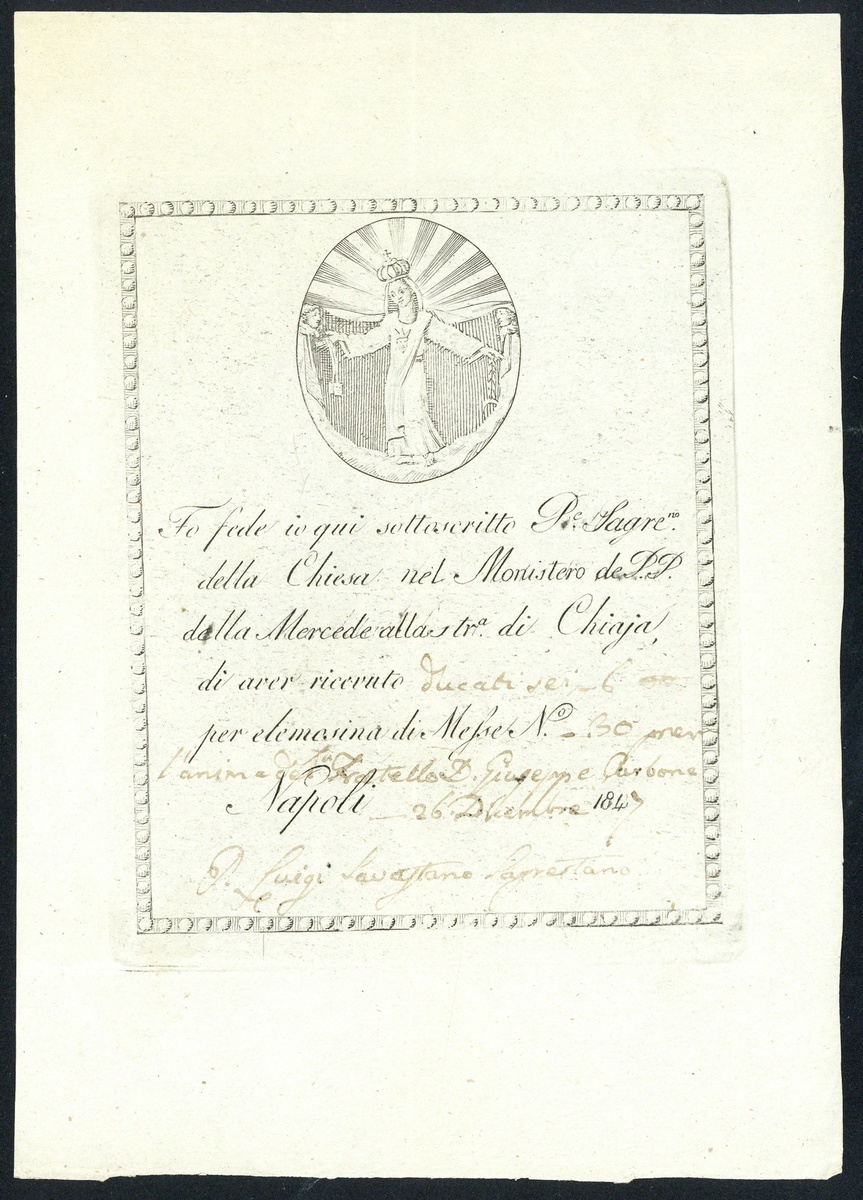 Fo fede io qui sottoscritto P.e Sagre.no
della Chiesa nel Monistero de P.P.
della Mercede alla str.a di Chiaja,
di aver ricevuto ducati sei 6
per elemosina di Messe N.o 30 per
l'anima Fratello D. Giuseppe Carbone
Napoli 26 Dicembre 1847
P. Luigi Savastano Sagrestano